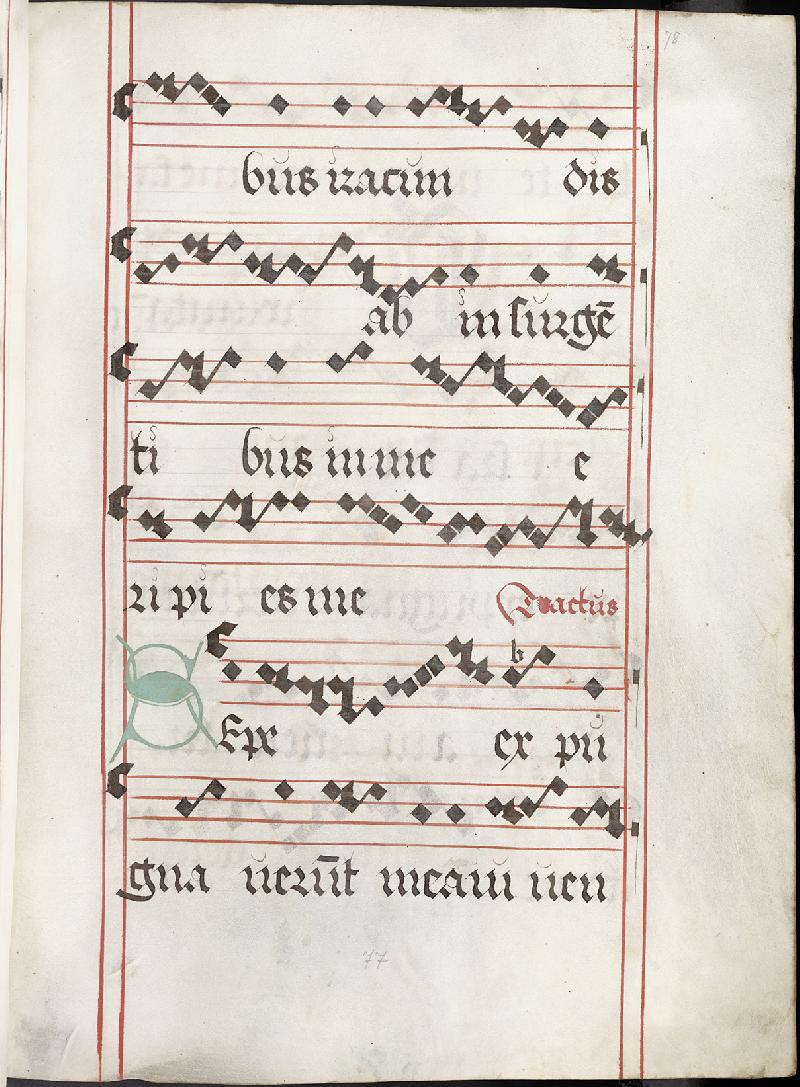 78
bus iracun dis
ab in surgē
ti bus in me e
ri pi es me Tractus
Sepe ex pu
gna uerūt meam uen
77